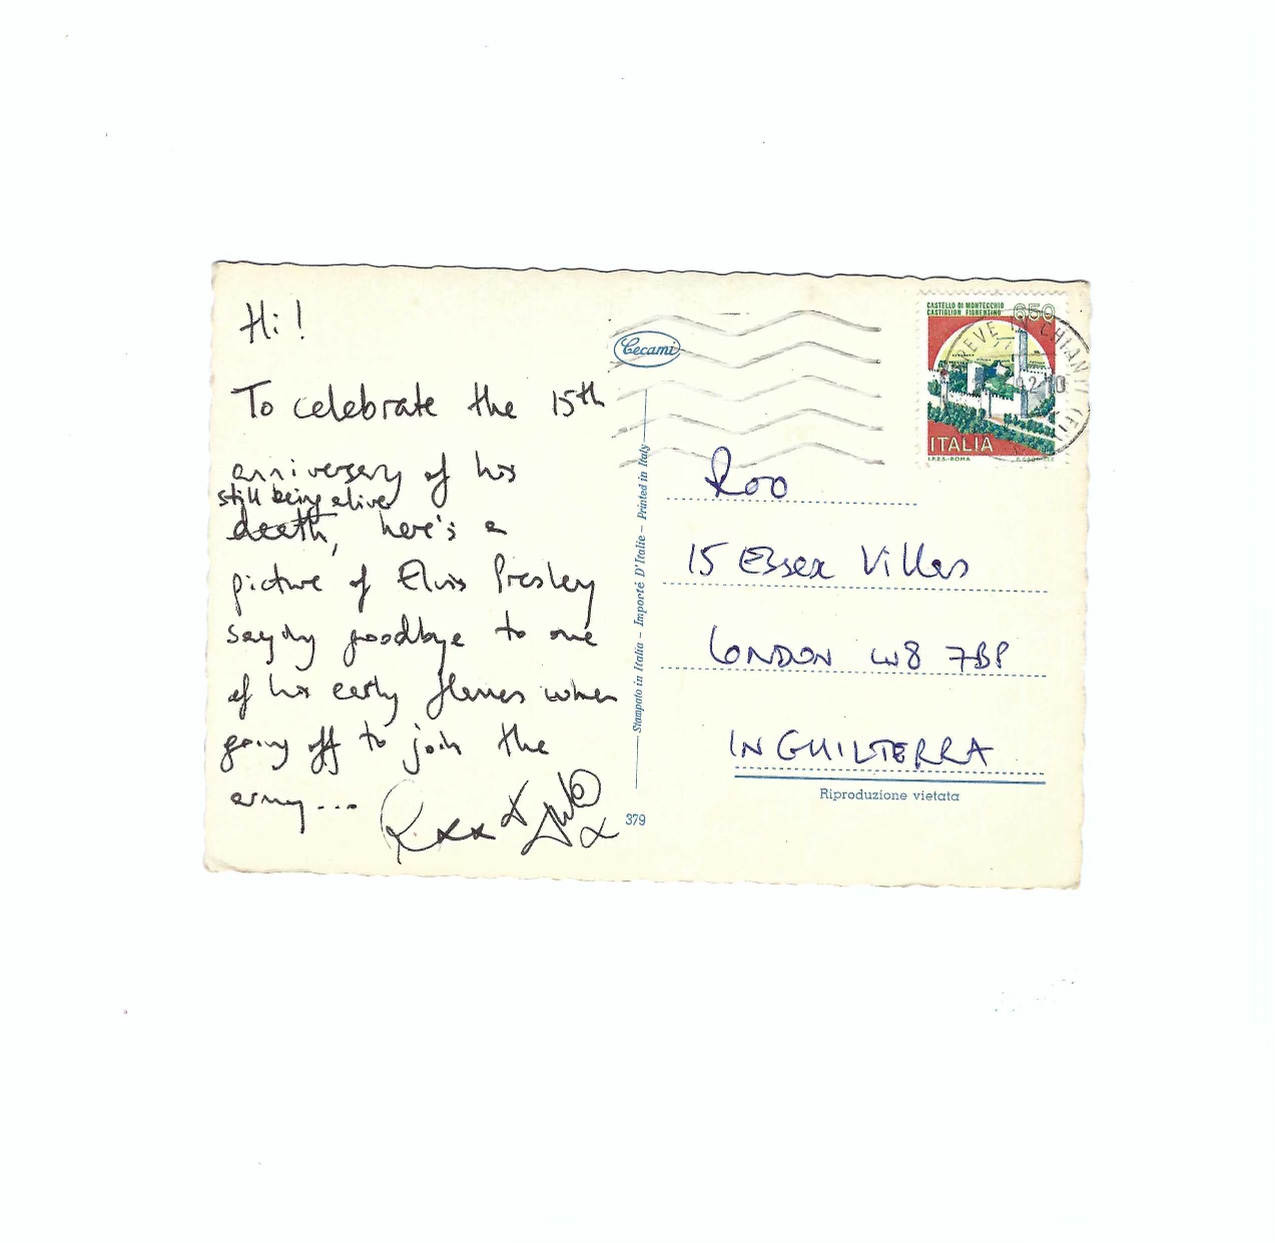 Hi!
To celebrate the 15th
anniversary of his
still being alive
death, here's a
picture of Elvis Presley
saying goodbye to one
of his early flames when
going off to join the
army...
xx x
x
Cecami
Stampato in Italia - Importé D'Italie - Printed in Italy
379
CASTELLO DI MONTECCHIO
CASTIGLION FIORENTINO
650
ITALIA
I.P.Z.S. - ROMA
CHIANTI
Roo
15 Essex Villas
LONDON W8 7BP
INGHILTERRA
Riproduzione vietata